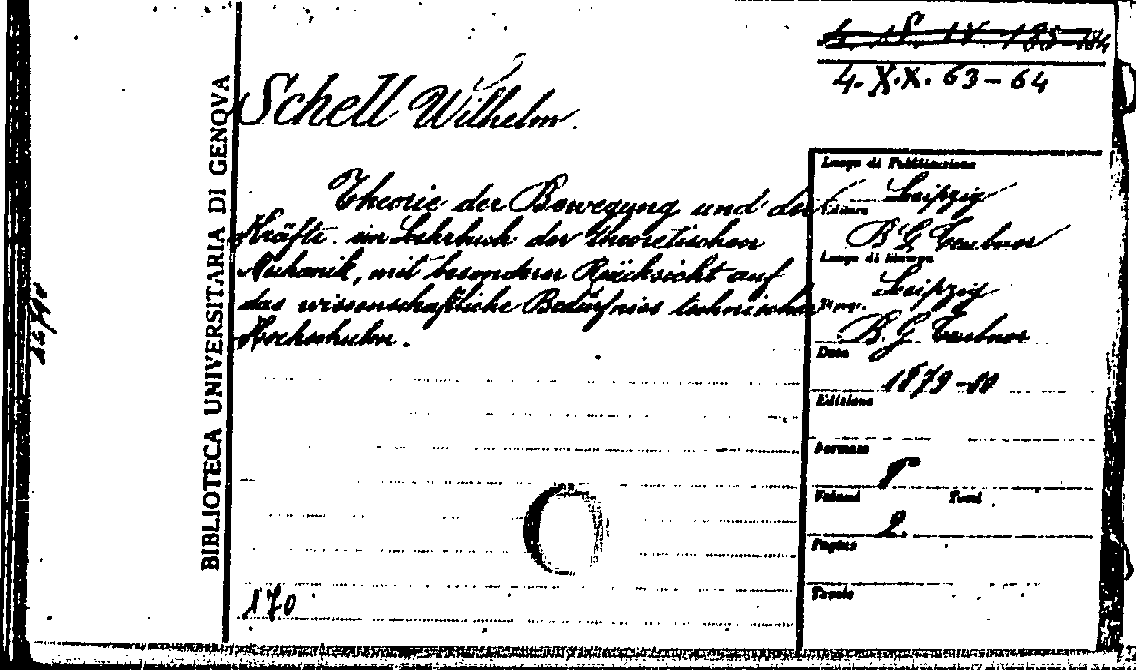 4. X.X. 63-64
Schell Wilhelm.
Theorie der Bewegung und der
Kräfte. ein Lehrbuch der theoretischen
Mechanik, mit besonderer Rücksicht auf
das wissenschaftliche Bedürfniss technischer
Hochschulen.
BIBLIOTECA UNIVERSITARIA DI GENOVA
Luogo di Pubblicazione
Leipzig
Editore
B G Teubner
Luogo di Stampa
Leipzig
B. G Teubner
Data
1879-80
Edizione
Formato
8
Volumi Tomi
2.
Pagine
Tavole
170